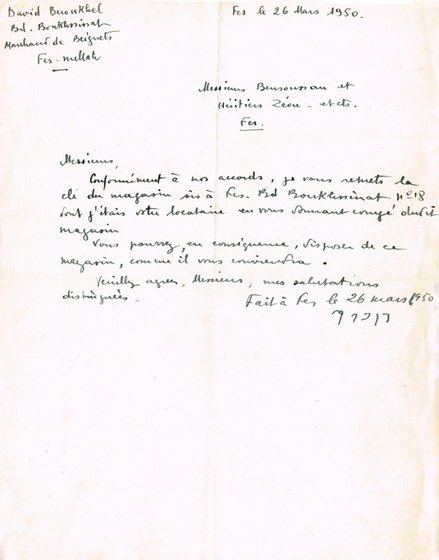 David Bouokhel
Bd. Boukhssinat
Marchand de Beignets
Fes-mellah
Fes le 26 Mars 1950.
Messieurs Bensoussan et
Héritiers Zéou - et cts.
Fes.
Messieurs,
Conformément à nos accords, je vous remets la
clé du magasin sis à Fes. Bd Boukhssinat n° 18
dont j'étais votre locataire en vous donnant congé dudit
magasin
Vous pourrez, en conséquence, disposer de ce
magasin, comme il vous conviendra.
Veuillez agréer, Messieurs, mes salutations
distinguées -
Fait à Fes le 26 mars 1950